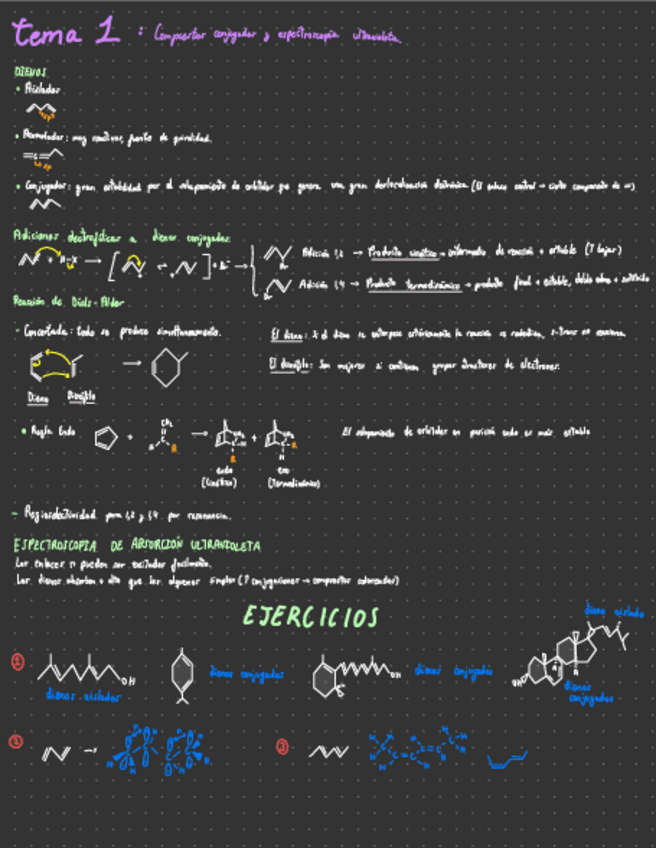 tema 1 : Compuestos conjugados y espectroscopía ultravioleta.
DIENOS
• Aislados
• Acumulados: muy reactivos, fuente de quiralidad.
• Conjugados: gran estabilidad por el solapamiento de orbitales que genera una gran deslocalización electrónica (El enlace central → cierto comportamiento de =)
Adiciones electrofílicas a dienos conjugados
Adición 1,2 → Producto cinético → intermedio de reacción + estable (T bajas)
Br
Adición 1,4 → Producto termodinámico → producto final + estable, doble enlace + sustituido
Br
Reacción de Diels-Alder
- Concertada: todo se produce simultáneamente.
El dieno: Si el dieno se interpone estéricamente la reacción se ralentiza, s-trans no reacciona.
El dienófilo: Son mejores si contienen grupos atractores de electrones.
Dieno Dienófilo
• Regla Endo
El solapamiento de orbitales en posición endo es más estable
endo
(Cinético)
exo
(Termodinámico)
- Regioselectividad para 1,2 y 1,4 por resonancia.
ESPECTROSCOPIA DE ABSORCIÓN ULTRAVIOLETA
Los enlaces π pueden ser excitados fácilmente.
Los dienos absorben + alto que los alquenos simples (↑ conjugaciones → compuestos coloreados)
EJERCICIOS
dieno aislado
①
OH
dienos aislados
dienos conjugados
OH
dienos conjugados
dienos
conjugados
②
③